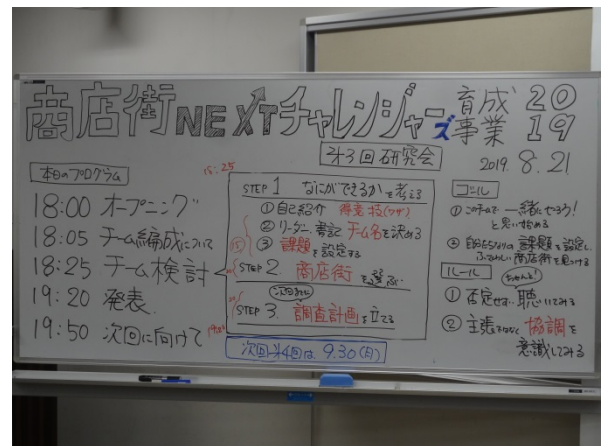 商店街NEXTチャレンジャーズ 育成事業 2019
第3回研究会
2019. 8. 21
本日のプログラム
18:00 オープニング
18:05 チーム編成について
18:25 チーム検討
19:20 発表
19:50 次回に向けて
18:25
STEP 1 なにができるかを考える
① 自己紹介 得意技(ワザ)
② リーダー、書記 チーム名を決める
③ 課題を設定する
STEP 2. 商店街を選ぶ
次回までに
STEP 3. 調査計画を立てる
次回 第4回は 9.30(月)
ゴール
① このチームで一緒にやろう!
と思い始める
② 自分たちなりの課題を設定し、
ふさわしい商店街を見つける
ルール
① 否定せず、聴いてみる
② 主張ではなく協調を
意識してみる